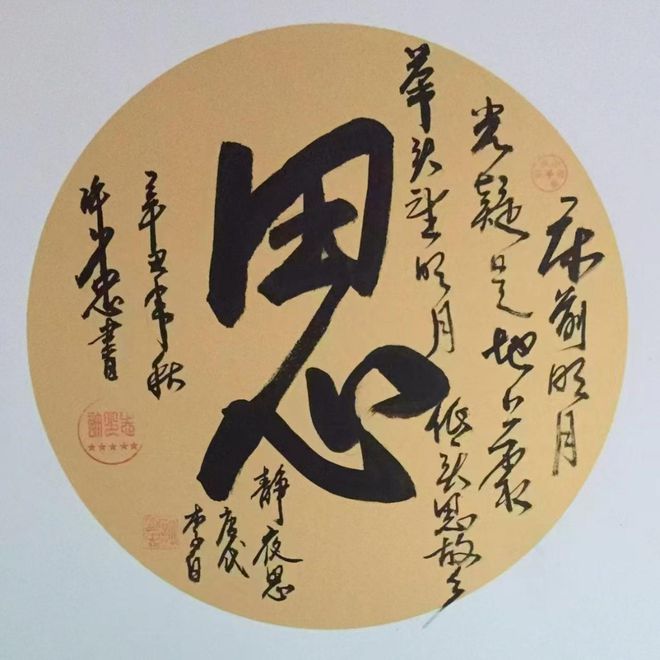 床前明月
光疑是地上霜
举头望明月
低头思故乡
思
静夜思
唐代
李白
辛丑年秋
许书